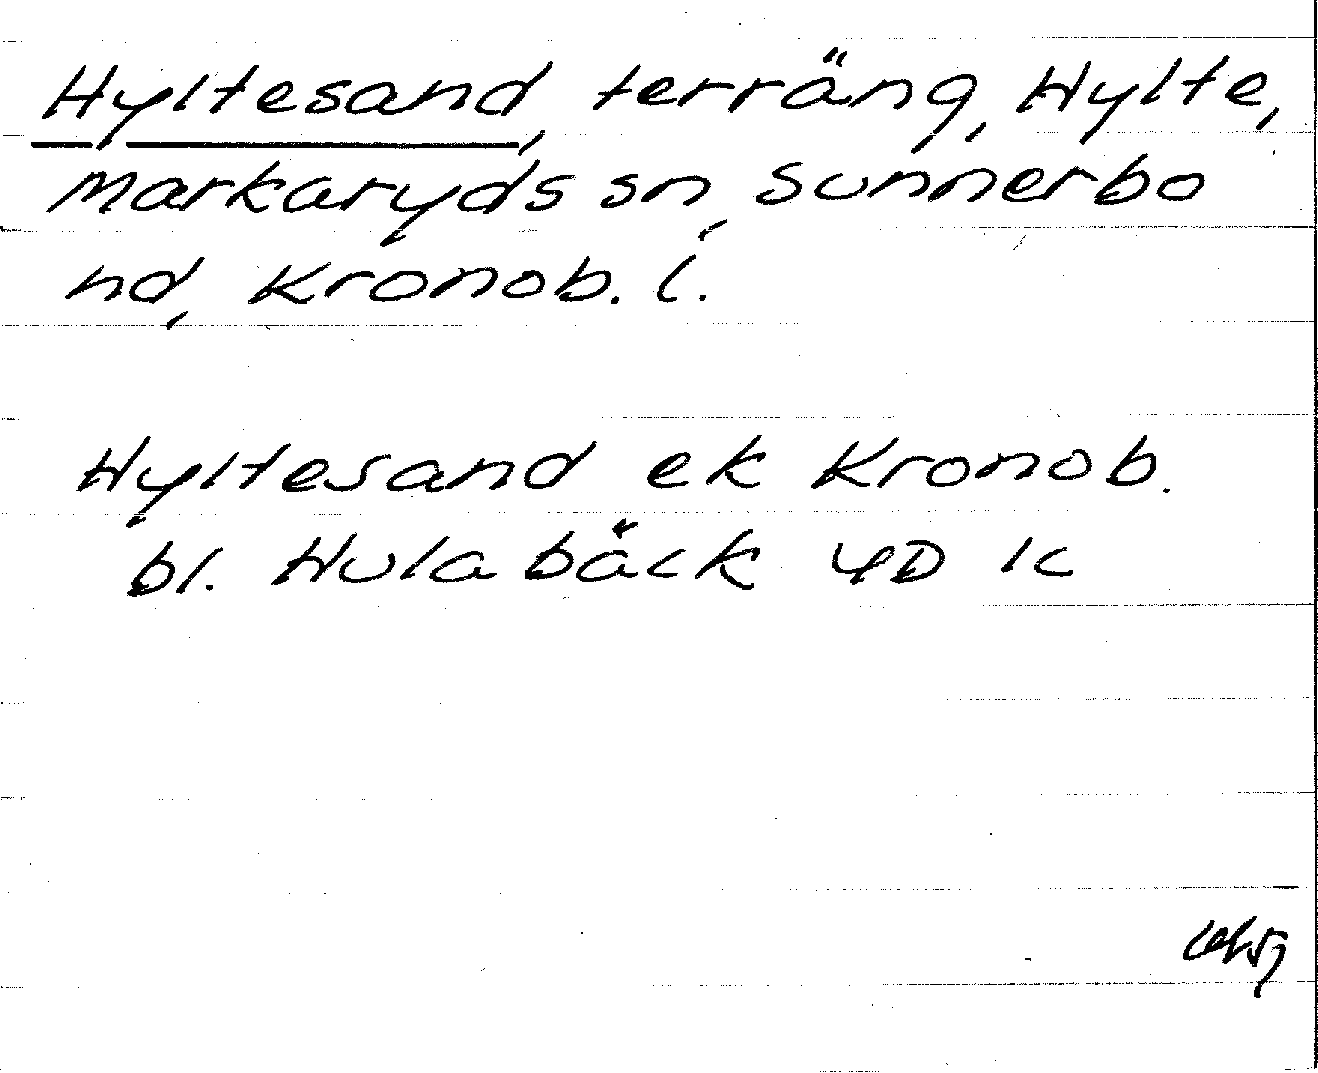 Hyltesand, terräng, Hylte,
Markaryds sn, Sunnerbo
hd, Kronob. l.
Hyltesand ek Kronob.
bl. Hulabäck 4D 1c